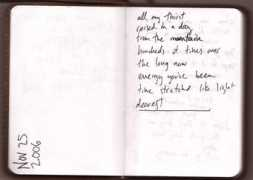 Nov 25
2006
all my thirst
in a day
from the mountain
hundreds of times over
the long now
energy you've been
time stretched like light
dearest